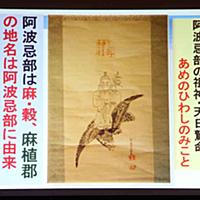 阿波忌部の祖神・天日鷲命
あめのひわしのみこと
阿波忌部は麻・穀、麻植郡
の地名は阿波忌部に由来